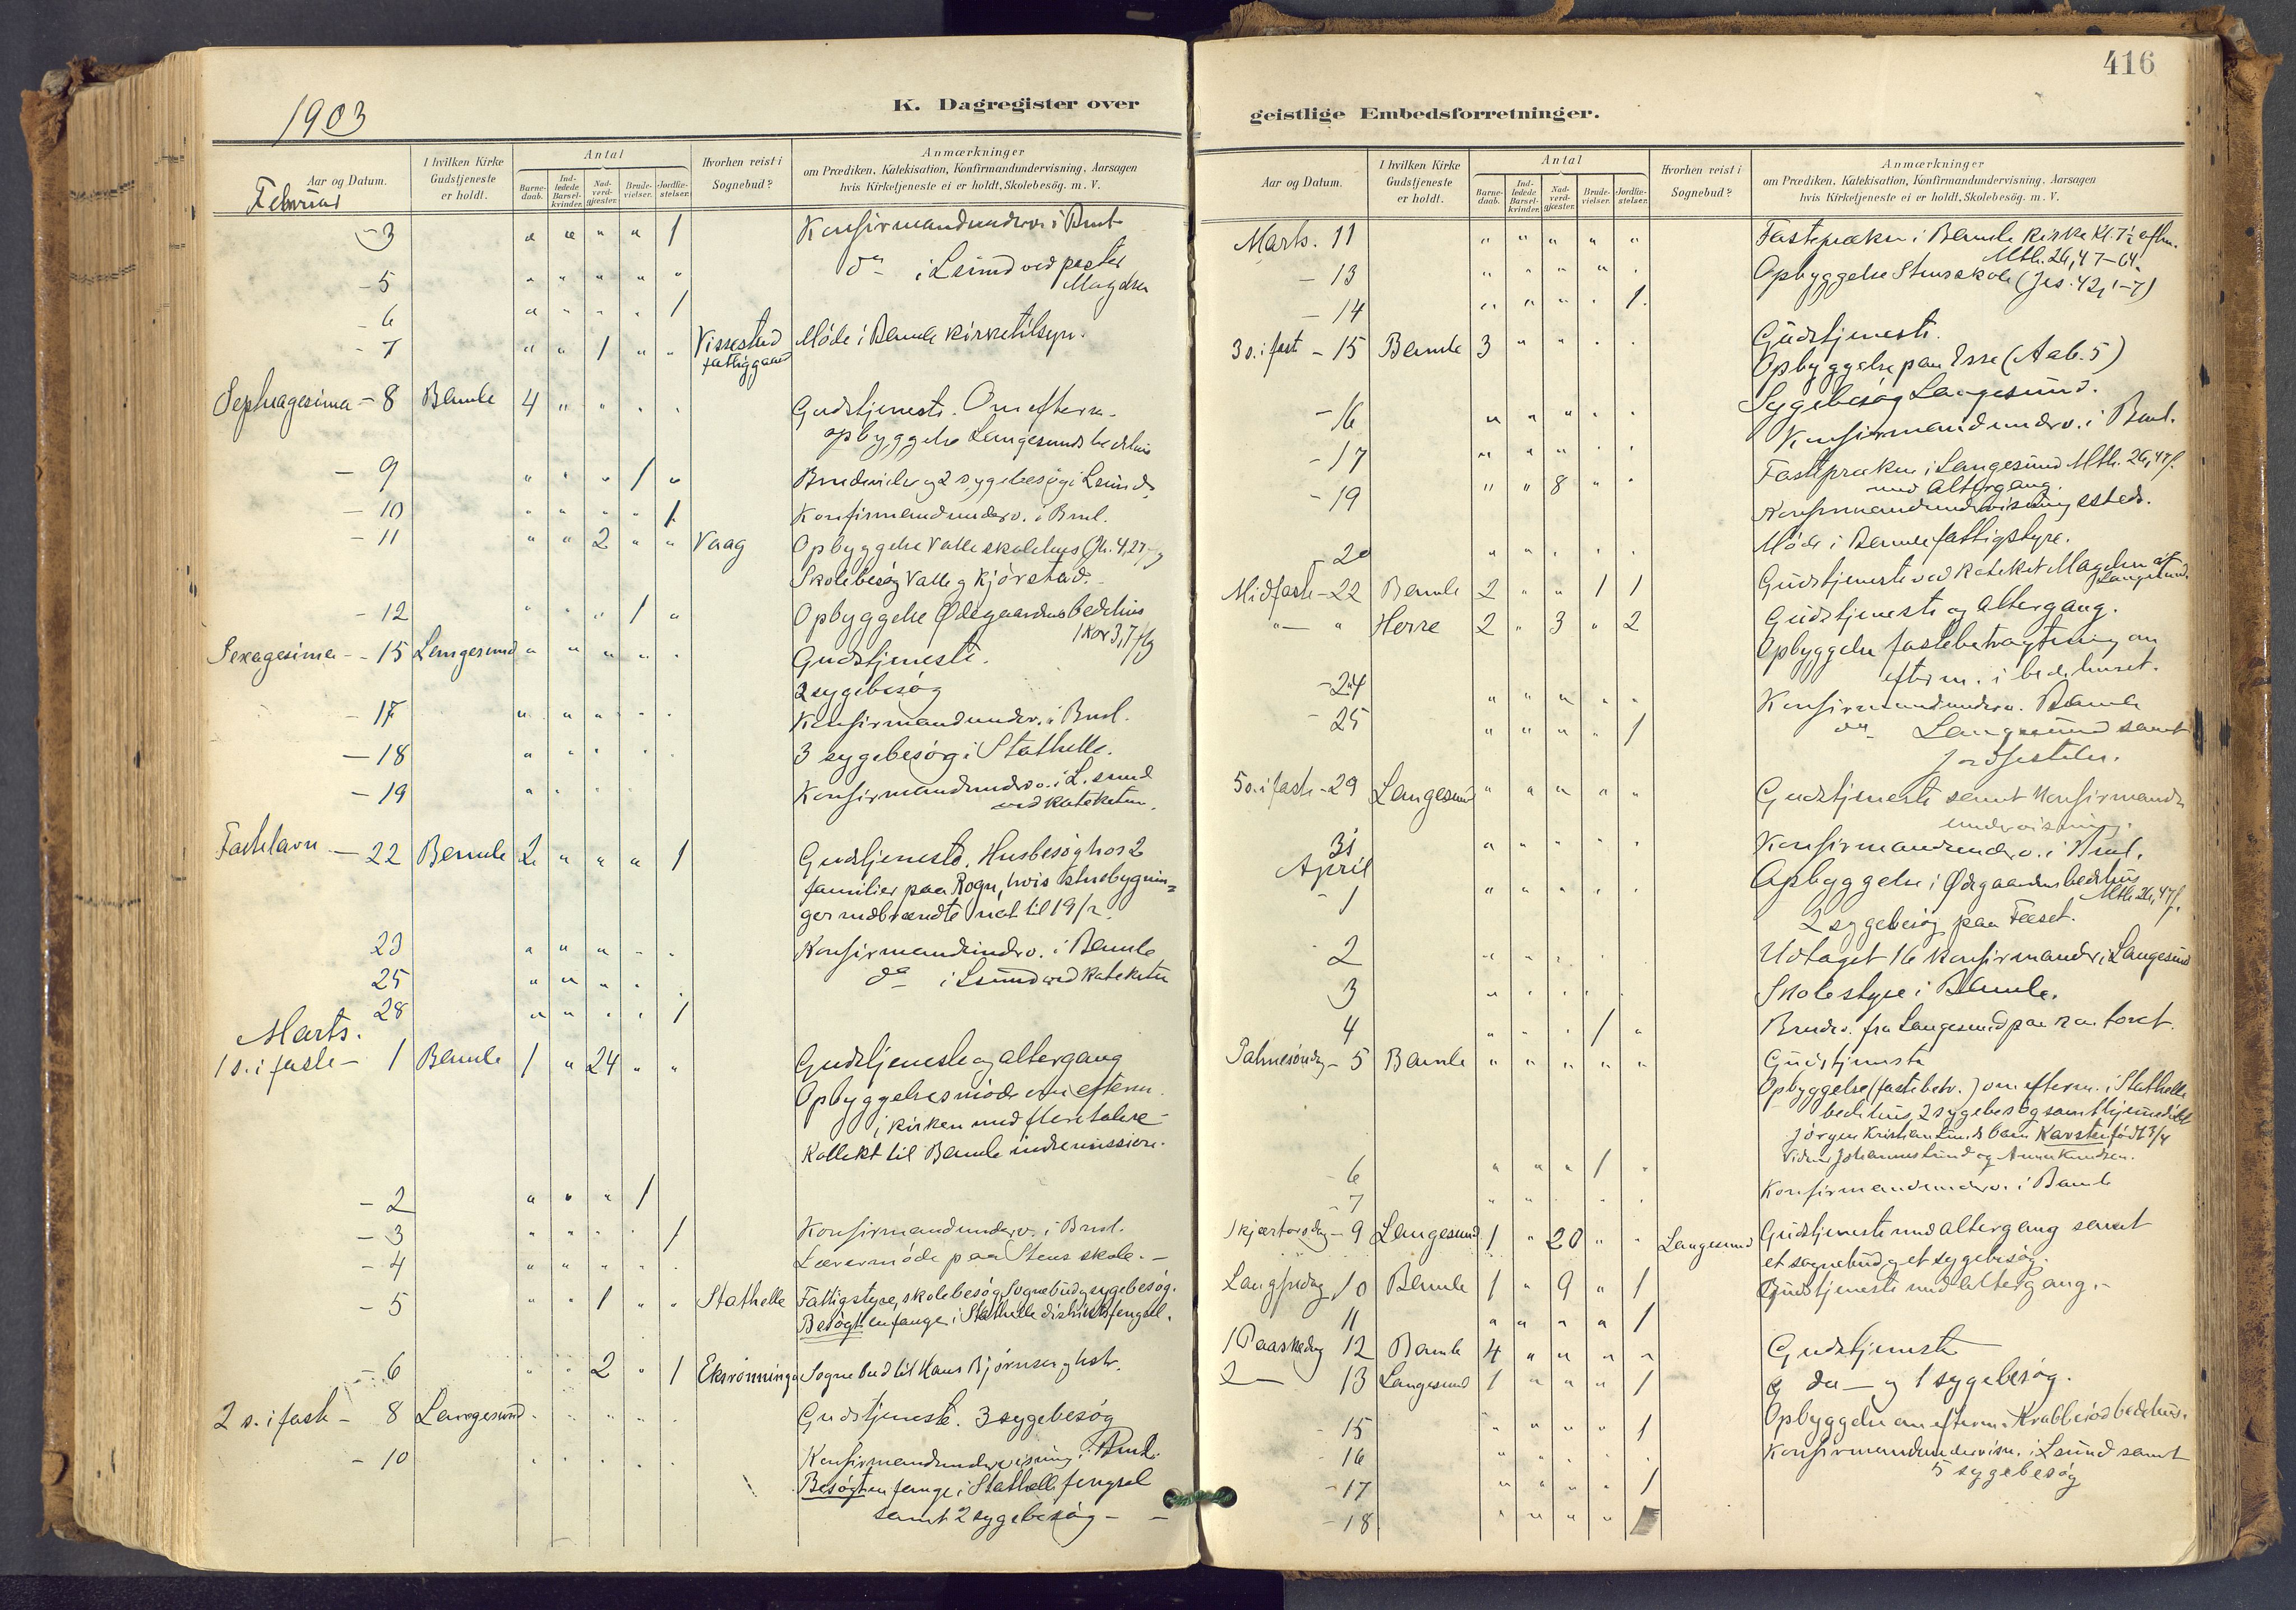 1903
K. Dagregister over
Aar og Datum.
I hvilken Kirke Gudstjeneste er holdt.
Antal
Barne-daab.
Ind-ledede Barsel-kvinder.
Nad-verd-gjæster.
Brude-vielser.
Jordfæ-stelser.
Hvorhen reist i Sognebud?
Anmærkninger
om Prædiken, Katekisation, Konfirmandundervisning, Aarsagen
hvis Kirketjeneste ei er holdt, Skolebesög. m. V.
Februar
3 " " " " 1 Konfirmandunderv. i Bml.
- 5 " " " " " do i Lsund ved pastor
Magelssen
- 6 " " " " 1
- 7 " " 1 " " Vissestad Møde i Bamle kirketilsyn.
fattiggaard
Septuagesima - 8 Bamle 4 " " " " Gudstjeneste. Om efterm.
opbyggelse Langesunds bedehus
- 9 " " " 1 " Brudevielse og 2 sygebesøg i Lsund.
- 10 " " " " 1 Konfirmandunderv. i Bml.
- 11 " " 2 " " Vaag Opbyggelse Valle skolehus (Jh. 4,27 flg
Skolebesøg Valle og Kjørstad.
- 12 " " " 1 " Opbyggelse Ødegaardens bedehus
1 Kor 3,7 flg
Sexagesima - 15 Langesund " " " " " Gudstjeneste.
2 sygebesøg
- 17 " " " " " Konfirmandunderv. i Bml.
- 18 " " " " " 3 sygebesøg i Stathelle.
- 19 " " " " Konfirmandunderv. i L.sund
ved kateketen.
Fastelavn - 22 Bamle 2 " " " 1 Gudstjeneste. Husbesøg hos 2
familier paa Rogn, hvis stuebygnin=
ger nedbrændte nat til 19/2.
23 " " " " " Konfirmandunderv. i Bamle
25 " " " " " do i Lsund ved kateketen
28 " " " " 1
Marts.
1 s. i faste - 1 Bamle 1 " 24 " " Gudstjeneste og altergang
Opbyggelsesmøde om efterm.
i kirken med flere talere -
Kollekt til Bamle indremission.
- 2 " " " 1
- 3 " " " " 1 Konfirmandunderv. i Bml.
- 4 " " " " " Lærermøde paa Stens skole. -
- 5 " " 1 " " Stathelle Fattigstyre, skolebesøg, Sognebud og sygebesøg.
Besøgt en fange i Stathelle distriktsfengsel.
- 6 " " 2 " 1 Sognebud til Hans Bjørnsen og hstr.
2 s. i faste - 8 Langesund " " " " Gudstjeneste. 3 sygebesøg
- 10 " " " " " Konfirmandundervisning i Bml.
Besøgt en fange i Stathelle fengsel
samt 2 sygebesøg -
416
geistlige Embedsforretninger.
Aar og Datum.
I hvilken Kirke Gudstjeneste er holdt.
Antal
Barne-daab.
Ind-ledede Barsel-kvinder.
Nad-verd-gjæster.
Brude-vielser.
Jordfie-stelser.
Hvorhen reist i Sognebud?
Anmærkninger
om Prædiken, Katekisation, Konfirmandundervisning, Aarsagen
hvis Kirketjeneste ei er holdt, Skolebesög. m. V.
Marts. 11 " " " " " Fastepræken i Bamle kirke Kl. 7½ eftm.
Mtth. 26,47-64.
- 13 " " " " " Opbyggelse Stens skole (Jes. 42,1-7)
- 14 " " " " 1
3 s. i fast - 15 Bamle 3 " " " " Gudstjeneste.
Opbyggelse paa (Aab. 5)
- 16 " " " " " Sygebesøg Langesund.
- 17 " " " " " Konfirmandunderv. i Bml.
- 19 " " 8 " " Fastepræken i Langesund Mth. 26,47 f.
med altergang.
Konfirmandundervisning steds.
- 20 " " " " " Møde i Bamle fattigstyre.
Midfaste - 22 Bamle 2 " " 1 1 Gudstjeneste ved kateket Magelssen af
Langesund.
" - " Herre 2 " 3 " 2 Gudstjeneste og altergang.
Opbyggelse fastebetragtning om
efterm. i bedehuset.
- 24 " " " " " Konfirmandunderv. Bamle
- 25 " " " " 1 do Langesund samt
jordfestelse.
5 s. i faste - 29 Langesund " " " " " Gudstjeneste samt konfirmand-
undervisning.
31 " " " " " Konfirmandunderv. i Bml.
April
- 1 " " " " " Opbyggelse i Ødegaardens bedehus
Mth 26,47 f.
2 sygebesøg paa Feset.
- 2 " " " " Udtaget 16 konfirmander i Langesund
3 " " " " Skolestyre i Bamle.
4 " " " 1 " Brudev. fra Langesund paa kontoret.
Palmesøndag - 5 Bamle " " " " " Gudstjeneste
Opbyggelse (fastebetr.) om efterm. i Stathelle
bedehus, 2 sygebesøg samt hjemmedøbt
Jørgen Kristian Lunds barn Karsten født 3/4
Vidner Johannes Lund og Anna Knudsen.
- 6 " " " 1 "
- 7 " " " " Konfirmandunderv. i Bamle
Skjærtorsdag - 9 Langesund 1 " 20 " " Langesund Gudstjeneste med altergang samt
et sognebud og et sygebesøg.
Langfredag 10 Bamle 1 " 9 " 1 Gudstjeneste med altergang. -
11 " " " " 1
1 Paaskedag 12 Bamle 4 " " " " Gudstjeneste
2 - 13 Langesund 1 " " " 1 do - og 1 sygebesøg.
- 15 " " " " 1 Opbyggelse om efterm. Krabberød bedehus.
- 16 " " " " " Konfirmandundervisn. i Lsund samt
5 sygebesøg
- 17 " " " " 1
- 18 " " " "